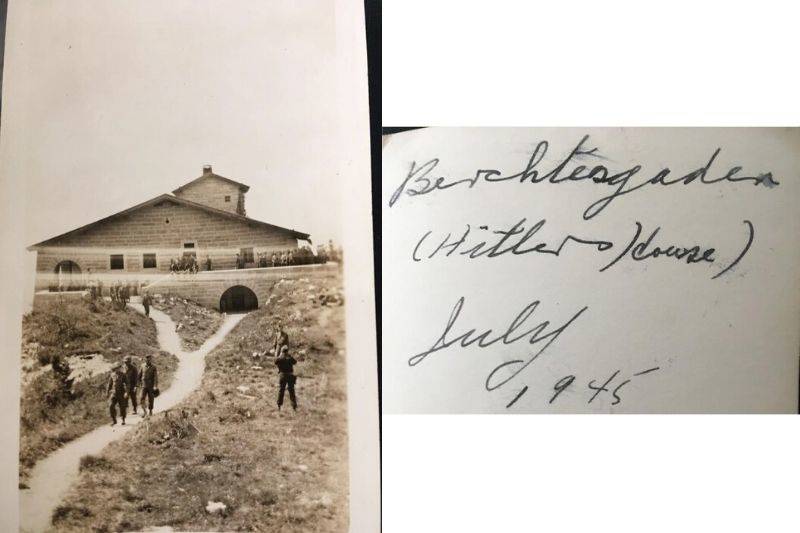 Berchtesgaden
(Hitlers House)
July
, 1945